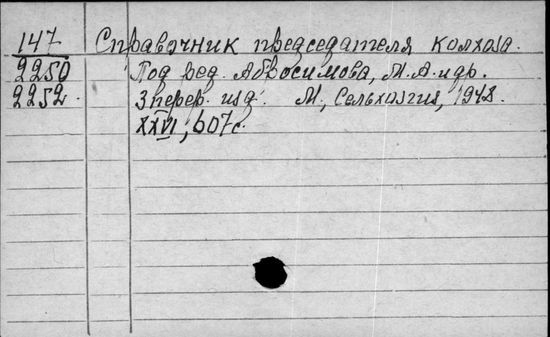 147 Справочник председателя колхоза.
2250 Под ред. Абросимова, М.А. и др.
2252. 3 перер. изд. М., Сельхозгиз, 1948.
XXVI, 607 с.